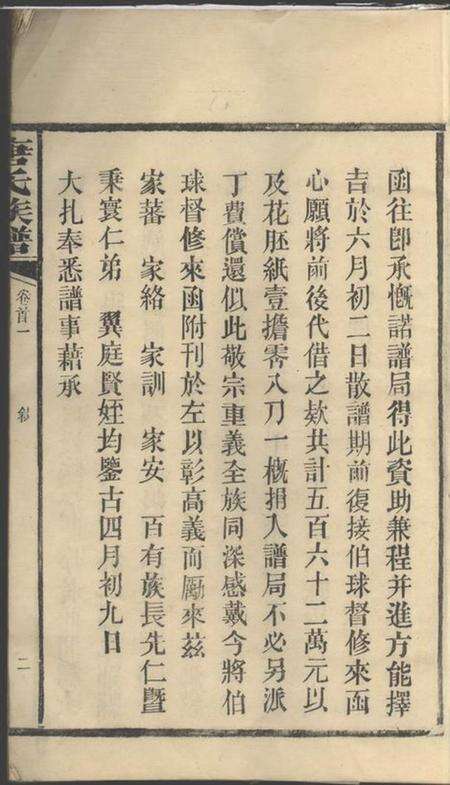 函往卽承慨諾譜局得此資助兼程并進方能擇
吉於六月初二日散譜期前復接伯球督修來函
心願將前後代借之欵共計五百六十二萬元以
及花胚紙壹擔零八刀一槪捐入譜局不必另派
丁費償還似此敬宗重義全族同深感戴今將伯
球督修來函附刊於左以彰高義而勵來茲
家蕃 家絡 家訓 家安 百有族長先仁暨
秉寰仁弟 翼庭賢姪均鑒古四月初九日
大扎奉悉譜事藉承
唐氏族譜
卷首一
彣
二